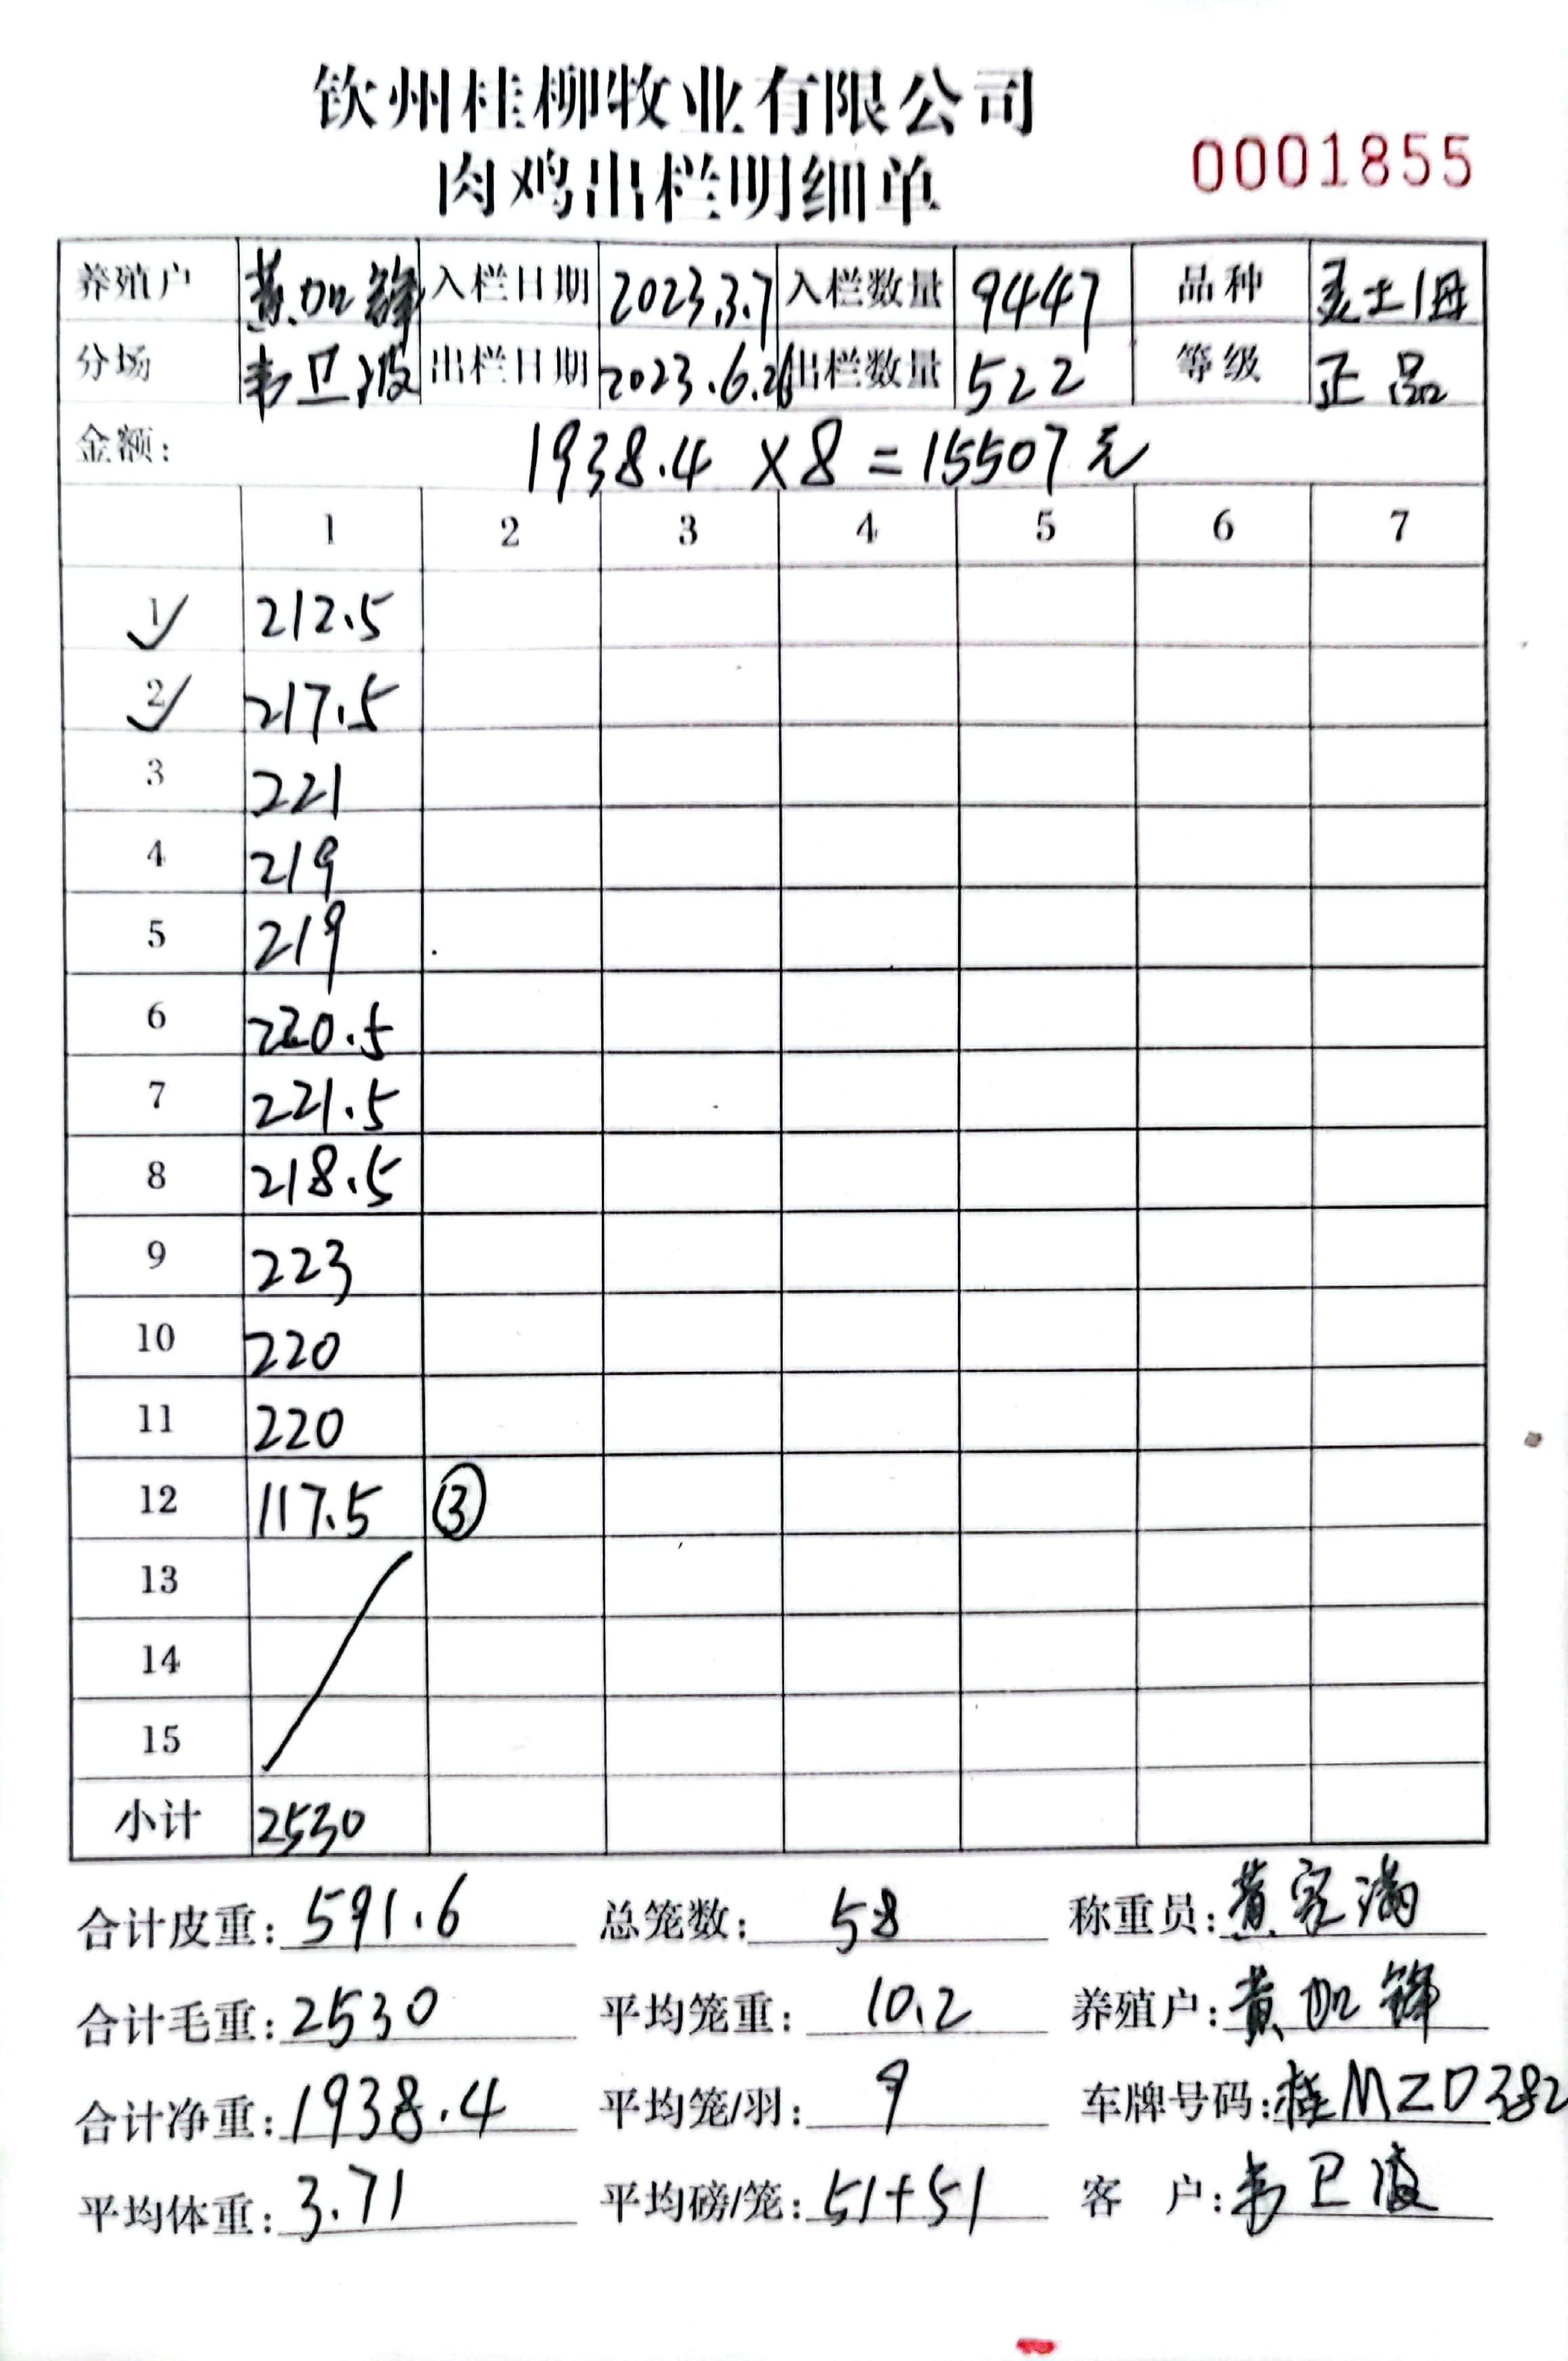 钦州桂柳牧业有限公司
肉鸡出栏明细单
0001855
养殖户 黄加锋 入栏日期 2023.3.7 入栏数量 9447 品种
分场 韦卫波 出栏日期 2023.6.26 出栏数量 522 等级 正品
金额: 1938.4 ×8=15507元
1 2 3 4 5 6 7
1 212.5
2 217.5
3 221
4 219
5 219
6 220.5
7 221.5
8 218.5
9 223
10 220
11 220
12 117.5 ③
13
14
15
小计 2530
合计皮重: 591.6 总笼数: 58 称重员: 黄家满
合计毛重: 2530 平均笼重: 10.2 养殖户: 黄加锋
合计净重: 1938.4 平均笼/羽: 9 车牌号码: 桂MZD382
平均体重: 3.71 平均磅/笼: 51+51 客 户: 韦卫波